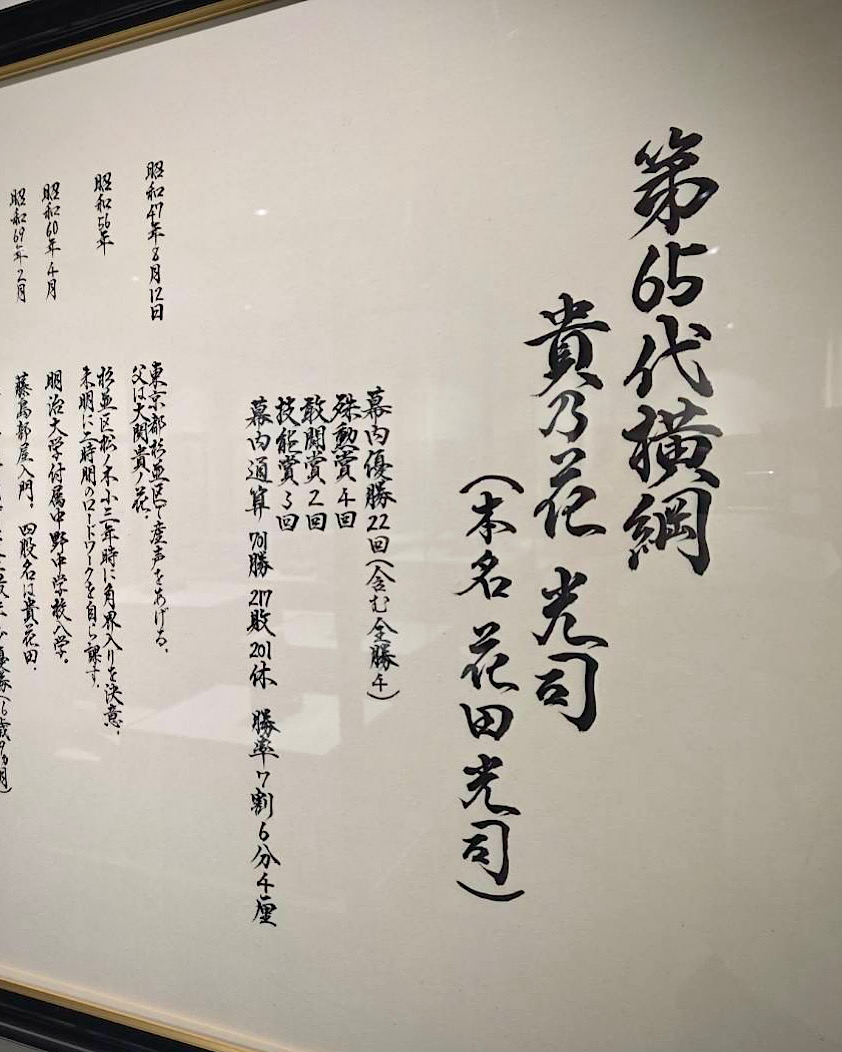 第65代横綱
貴乃花 光司
(本名 花田光司)
幕内優勝22回(含む全勝4)
殊勲賞4回
敢闘賞2回
技能賞3回
幕内通算 701勝 217敗 201休 勝率7割6分4厘
昭和47年8月12日 東京都杉並区で産声をあげる。
父は大関貴ノ花。
昭和56年 杉並区松ノ木小三年時に角界入りを決意。
未明に二時間のロードワークを自ら課す。
昭和60年4月 明治大学付属中野中学校入学。
昭和69年2月 藤島部屋入門。四股名は貴花田。